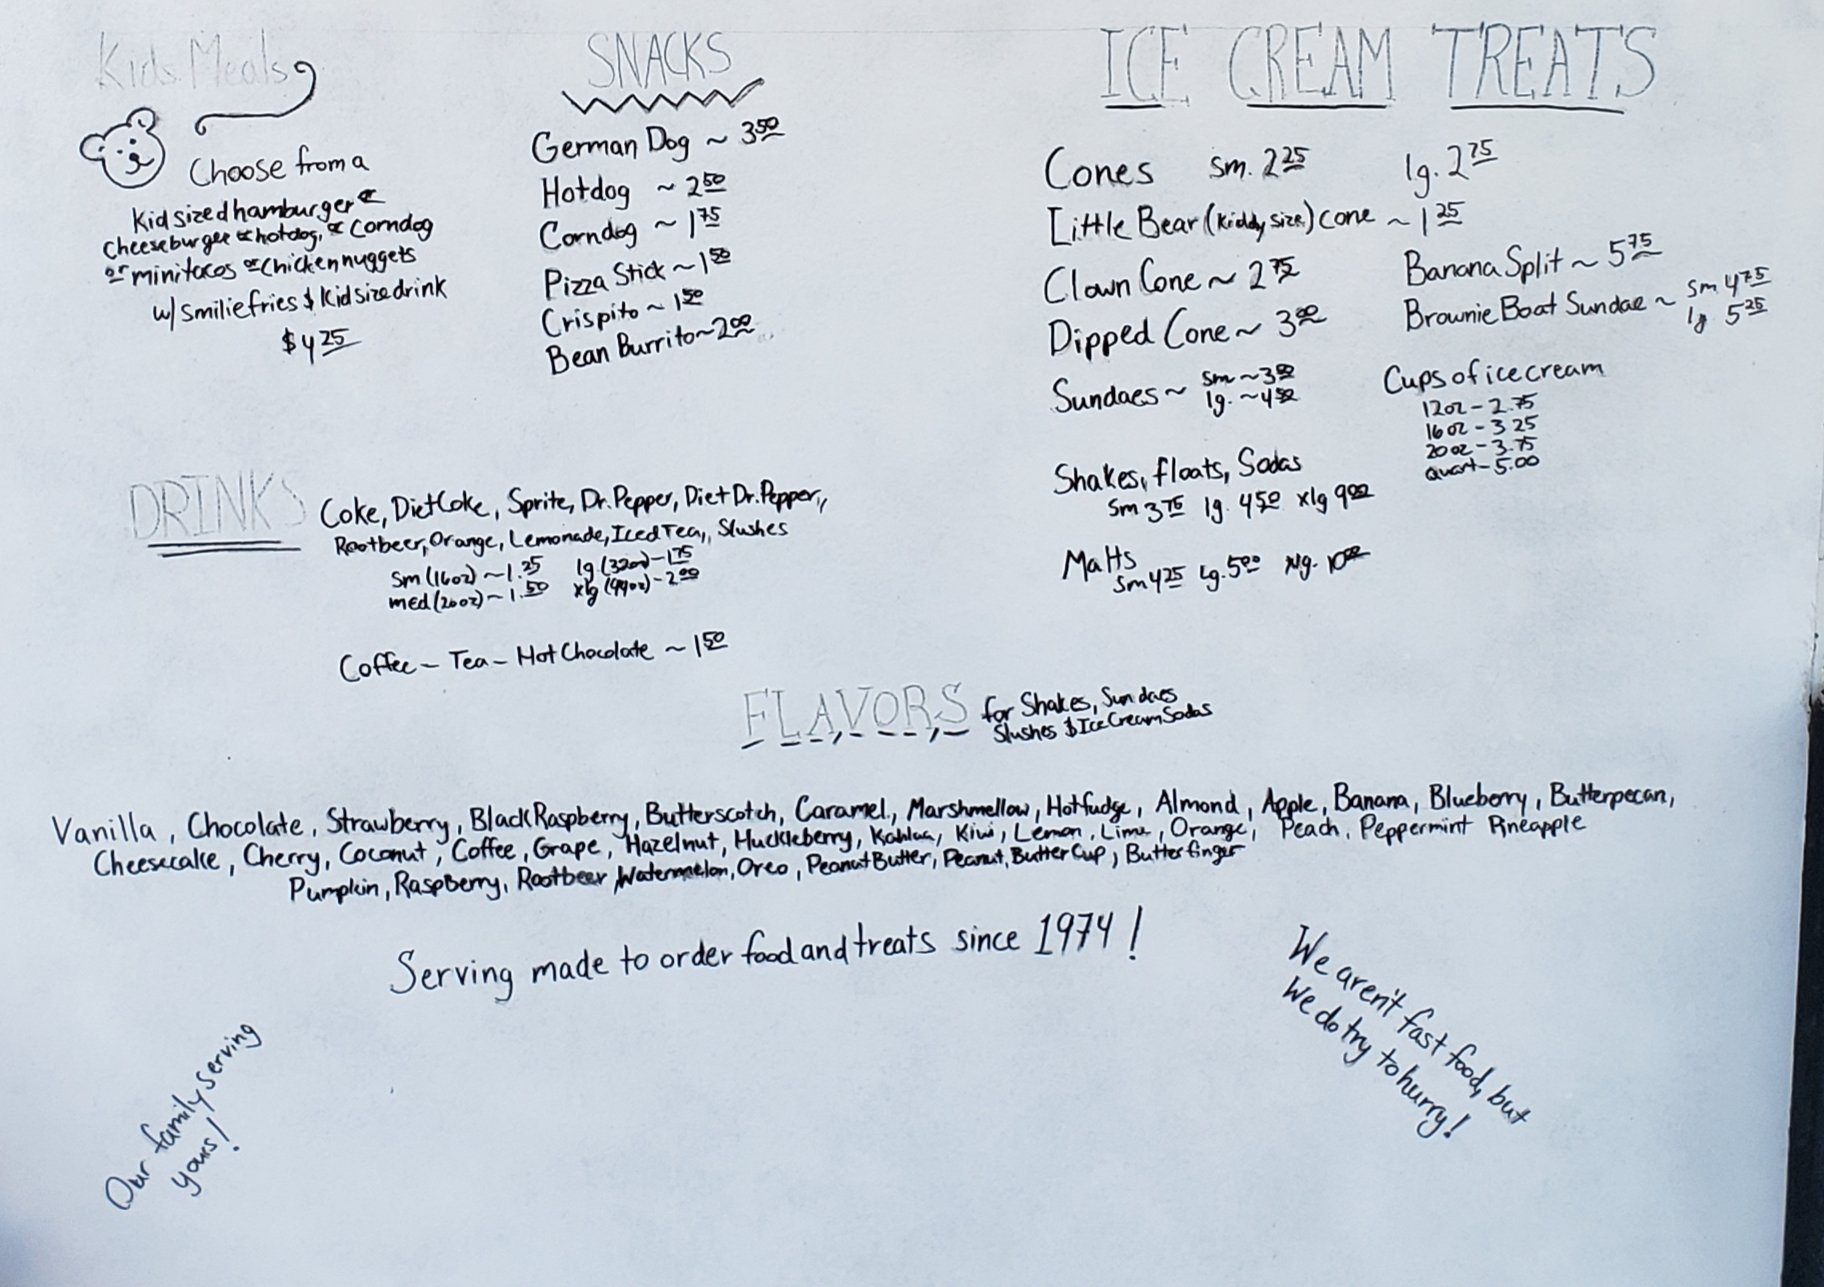 Kids Meals
Choose from a
Kid sized hamburger or
cheeseburger or hotdog, or Corndog
or mini tacos or Chicken nuggets
w/ Smilie fries & Kid size drink
$4.25
SNACKS
German Dog ~ 3.50
Hotdog ~ 2.50
Corndog ~ 1.75
Pizza Stick ~ 1.50
Crispito ~ 1.50
Bean Burrito ~ 2.00
ICE CREAM TREATS
Cones sm. 2.25 lg. 2.75
Little Bear (Kiddy size) cone ~ 1.25
Clown Cone ~ 2.75
Dipped Cone ~ 3.00
Sundaes ~ sm ~ 3.50
lg. ~ 4.50
Banana Split ~ 5.75
Brownie Boat Sundae ~ sm 4.75
lg 5.25
Cups of ice cream
12oz - 2.75
16oz - 3.25
20oz - 3.75
quart - 5.00
Shakes, floats, Sodas
sm 3.75 lg. 4.50 xlg 9.00
Malts
sm 4.25 lg. 5.00 xlg. 10.00
DRINKS
Coke, Diet Coke, Sprite, Dr. Pepper, Diet Dr. Pepper,,
Rootbeer, Orange, Lemonade, Iced Tea,, Slushes
sm (16oz) ~ 1.25 lg (32oz) - 1.75
med (20oz) ~ 1.50 xlg (44oz) - 2.00
Coffee - Tea - Hot Chocolate ~ 1.50
FLAVORS for Shakes, Sundaes
Slushes & Ice Cream Sodas
Vanilla, Chocolate, Strawberry, Black Raspberry, Butterscotch, Caramel, Marshmellow, Hotfudge, Almond, Apple, Banana, Blueberry, Butterpecan,
Cheesecake, Cherry, Coconut, Coffee, Grape, Hazelnut, Huckleberry, Kahlua, Kiwi, Lemon, Lime, Orange, Peach, Peppermint Pineapple
Pumpkin, RaspBerry, Rootbeer, Watermelon, Oreo, Peanut Butter, Peanut, Butter Cup, Butterfinger
Serving made to order food and treats since 1974!
We aren't fast food, but
We do try to hurry!
Our family serving
yours!